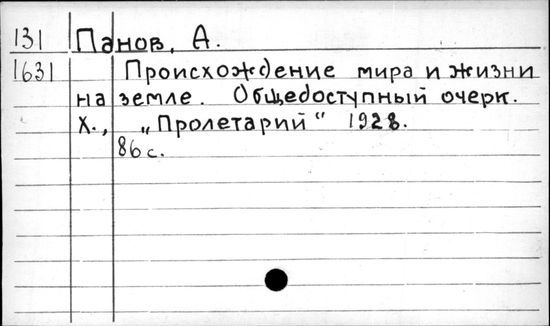 131 Панов, А.
1631 Происхождение мира и жизни
на земле. Общедоступный очерк.
Х., „Пролетарий“ 1928.
86 с.